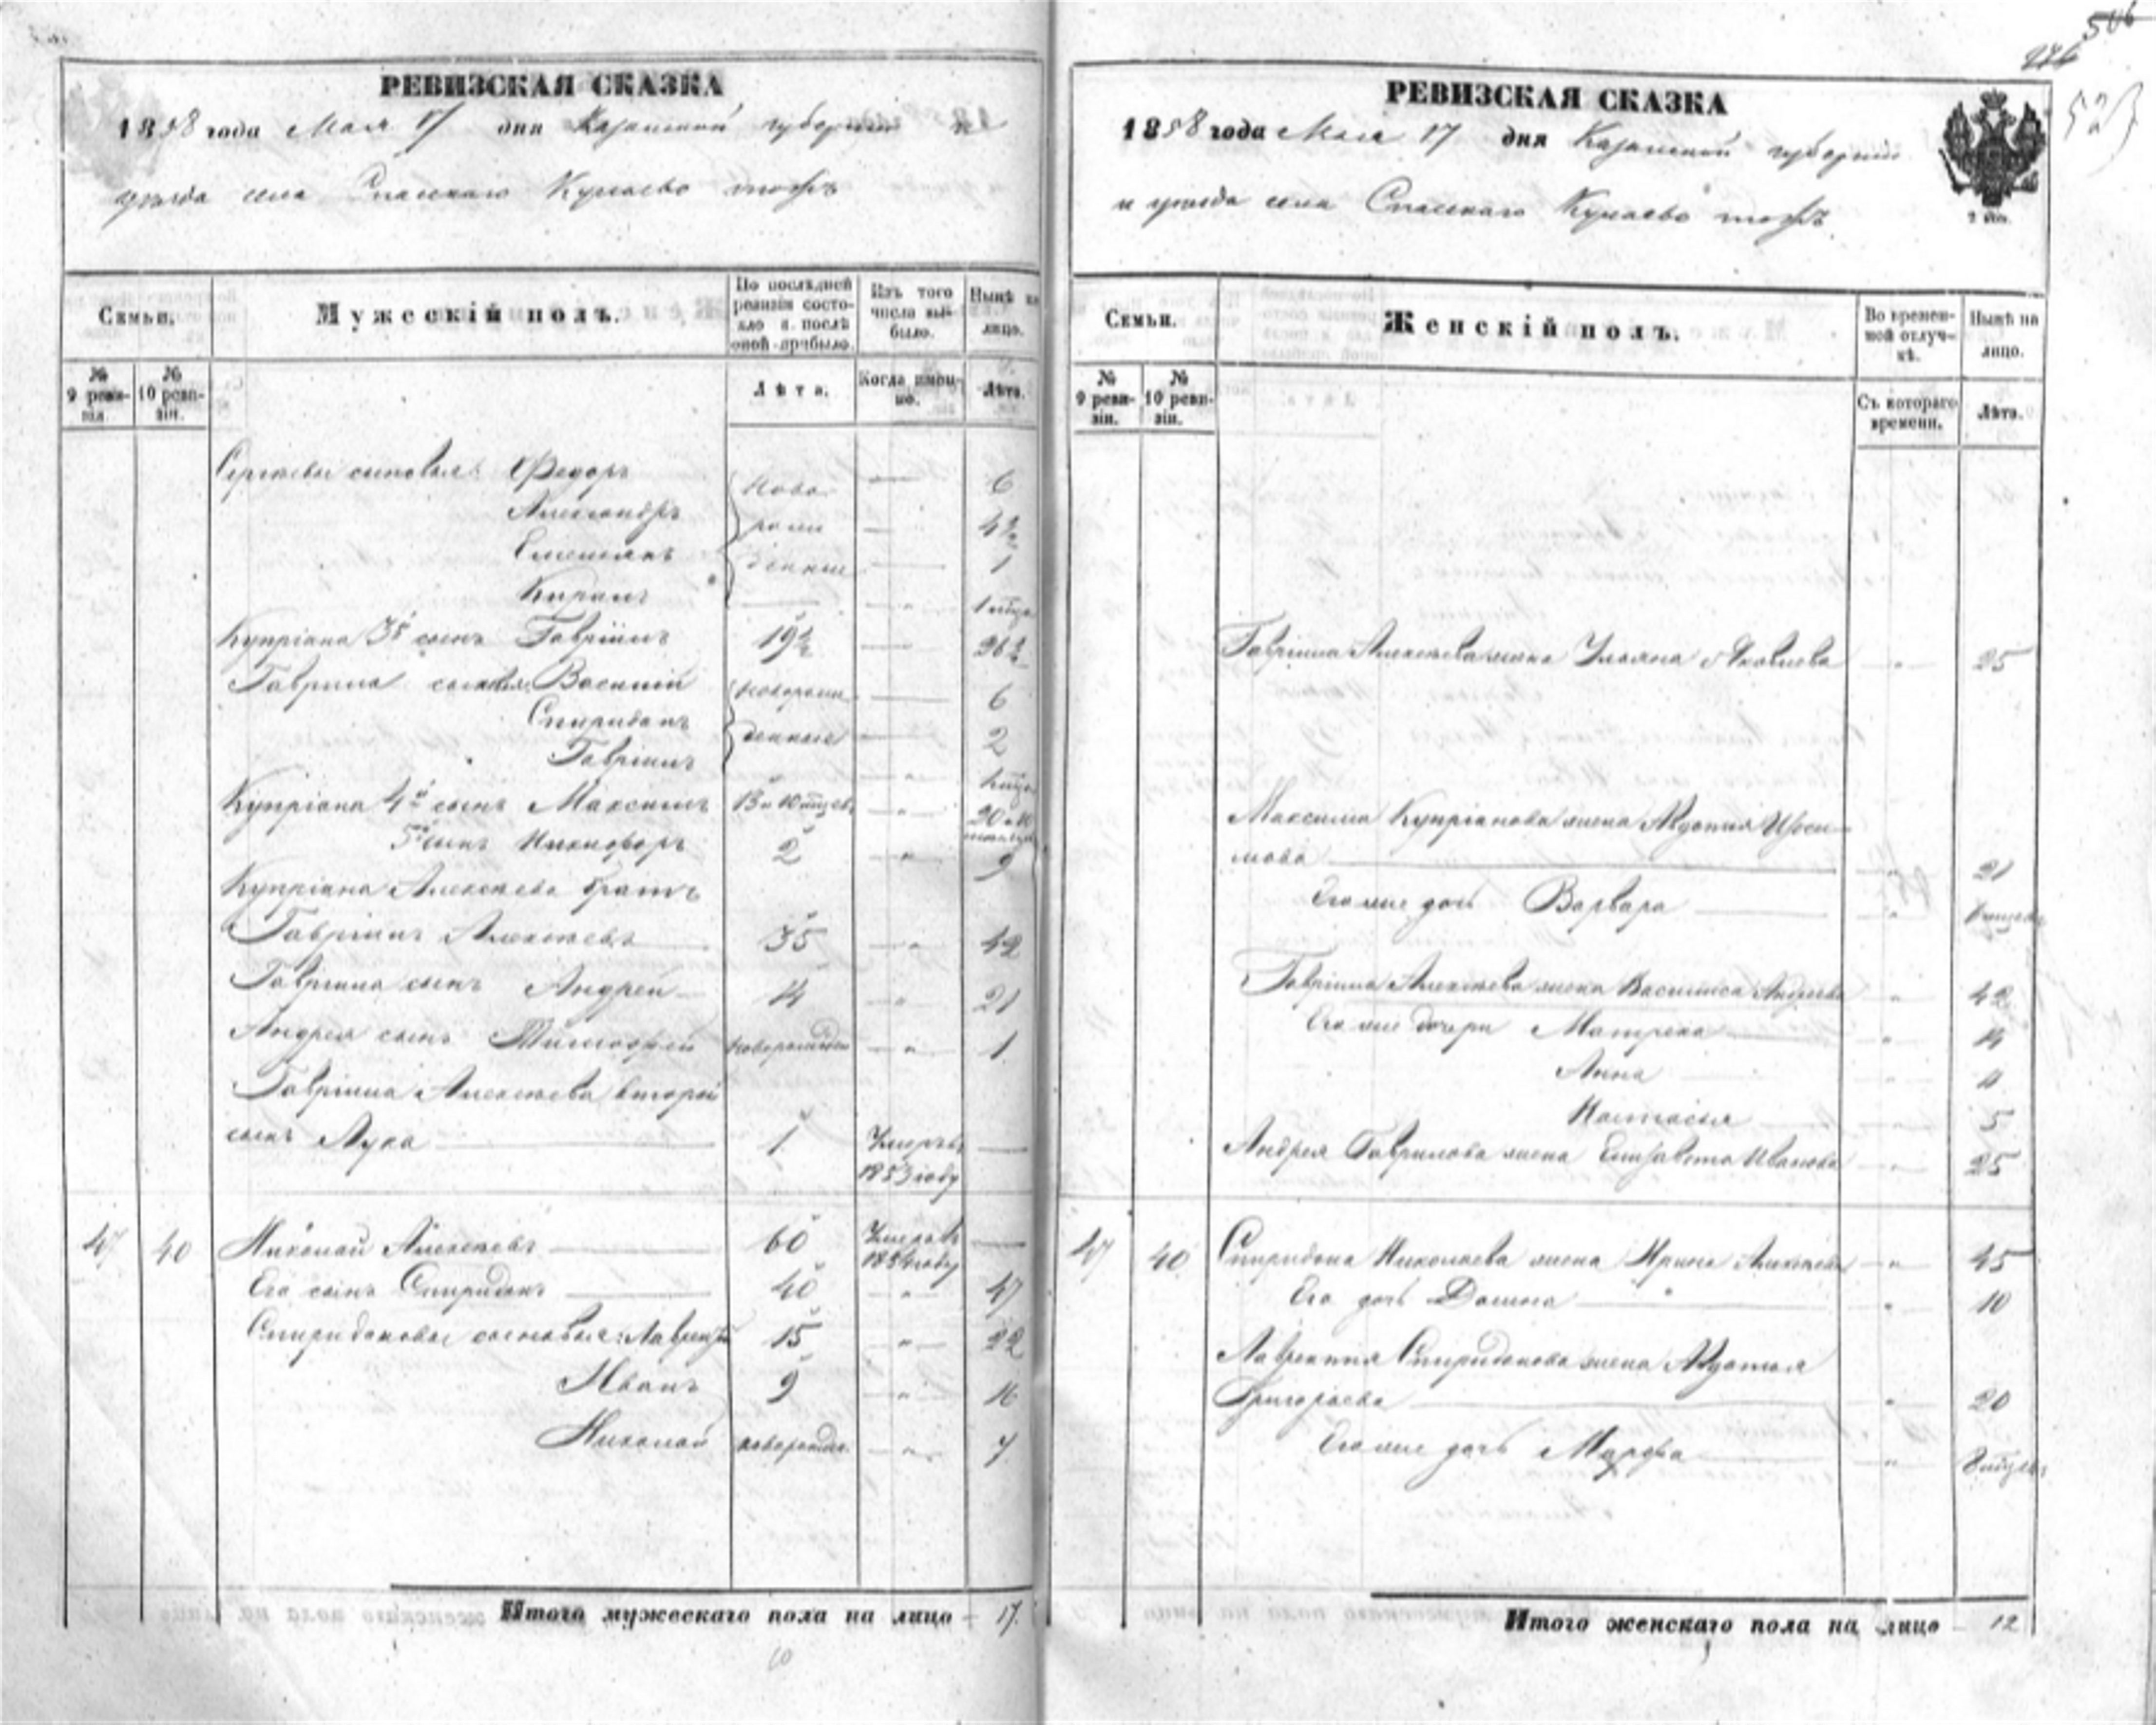 506
РЕВИЗСКАЯ СКАЗКА
1858 года Мая 17 дня Казанской губернии и
уезда села Спасскаго Кунаево тожъ
Семьи.
Мужескій полъ.
По послѣдней ревизіи состояло и послѣ оной прибыло.
Изъ того числа выбыло.
Нынѣ на лицо.
№ 9 ревизіи.
№ 10 ревизіи.
Лѣта.
Когда именно.
Лѣта.
Сергѣевы сыновья: Федоръ 6
Александръ 4½
Емельянъ 1
новорожденные
Кирилъ
Купріана 3й сынъ Гавріилъ 19½ 26½
Гаврила сыновья: Василій 6
Спиридонъ 2
новорожденные
Гавріилъ
Купріана 4й сынъ Максимъ
5й сынъ Никифоръ 2 9
Купріана Алексѣева братъ
Гавріилъ Алексѣевъ 35 42
Гавріила сынъ Андрей 14 21
Андрея сынъ Тимофей новорожден 1
Гавріила Алексѣева второй
сынъ Лука 1 Умеръ въ
1853 году
47 40 Николай Алексѣевъ 60 Умеръ въ
1854 году
Его сынъ Спиридонъ 40 47
Спиридоновы сыновья: Лаврентій 15 22
Иванъ 9 16
Николай новорожден. 7
Итого мужескаго пола на лицо 17.
РЕВИЗСКАЯ СКАЗКА
1858 года Мая 17 дня Казанской губерніи
и уезда села Спасскаго Кунаево тожъ
Семьи.
Женскій полъ.
Во временной отлучкѣ.
Нынѣ на лицо.
№ 9 ревизіи.
№ 10 ревизіи.
Съ котораго времени.
Лѣта.
Гавріила Алексѣева жена Ульяна Яковлева 25
Максима Купріанова жена Авдотья
21
Его же дочь Варвара
Гавріила Алексѣева жена Василиса Андреева 42
Его же дочери Матрена 14
Анна 11
Настасья 5
Андрея Гаврилова жена Елизавета Иванова 25
47 40 Спиридона Николаева жена Ирина Алексѣева 45
Его дочь Домна 10
Лаврентія Спиридонова жена Авдотья
Григорьева 20
Его же дочь Марфа
Итого женскаго пола на лицо 12